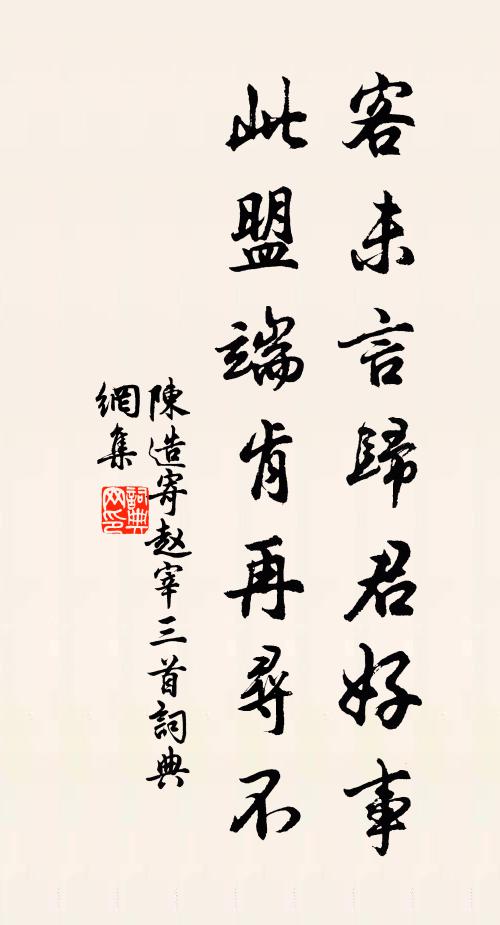 客未言歸君好事
此盟端肯再尋不
陳造寄赵宰三首詞典
網集
詞典網印